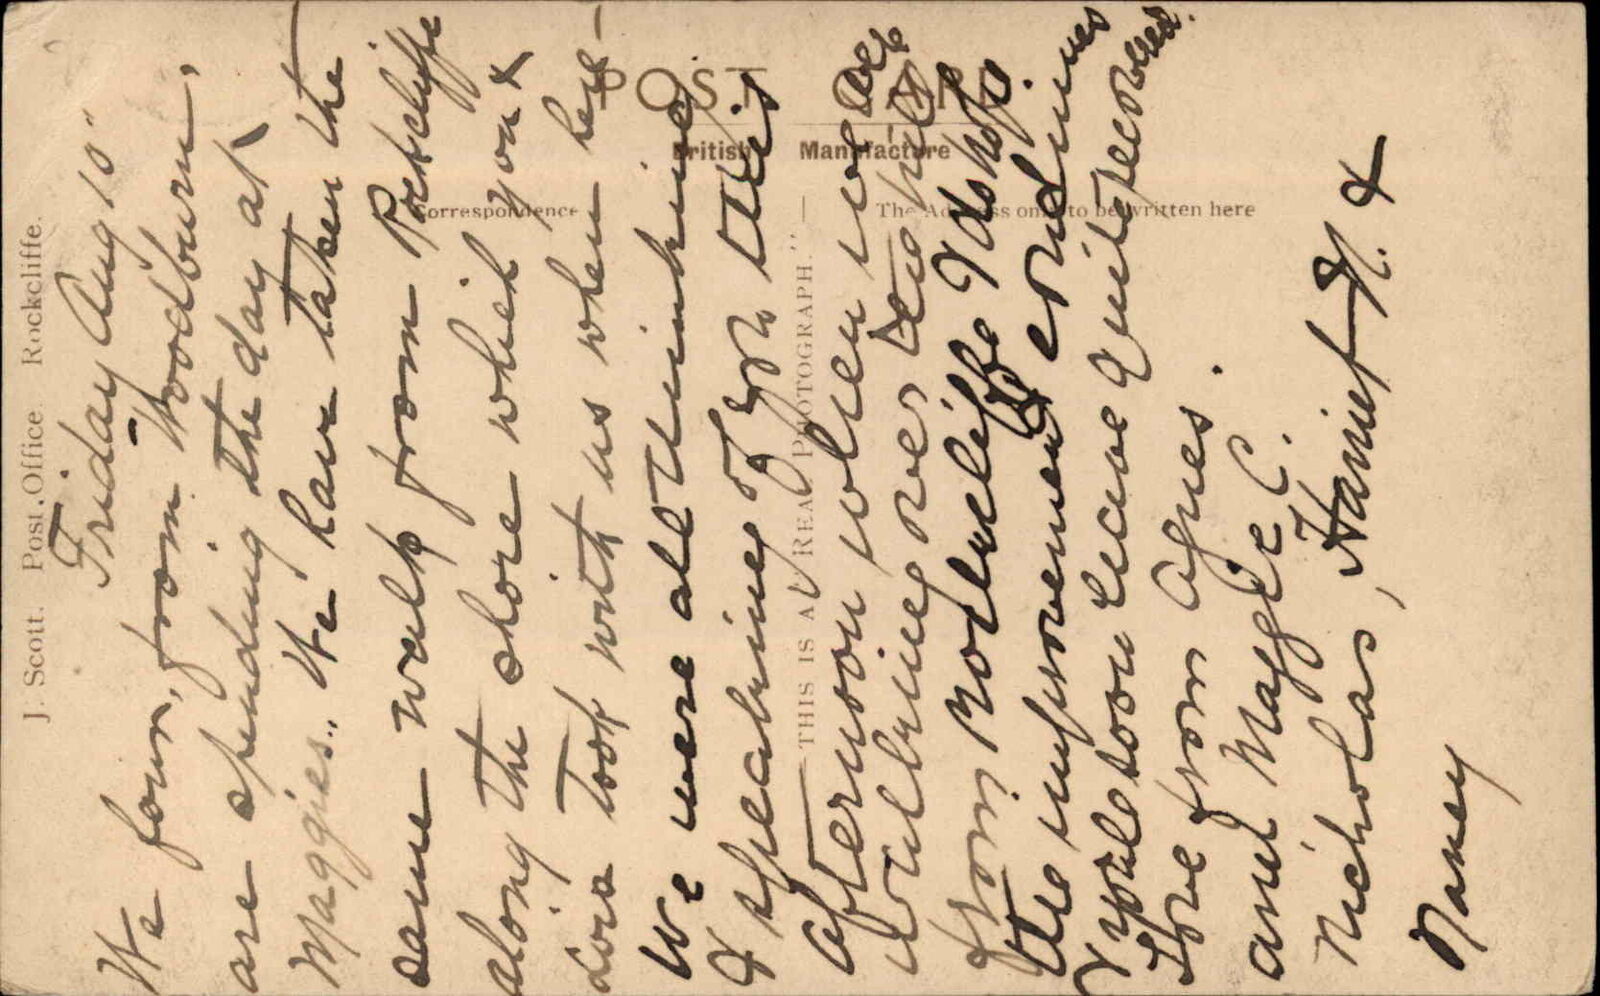 J. Scott. Post Office. Rockcliffe.
POST CARD
British Manufacture
Correspondence
The Address only to be written here
THIS IS A "REAL PHOTOGRAPH."
Friday Aug 10"
We four, from Woodburn,
are spending the day at
Maggies. We have taken the
same walk from Rockcliffe
along the shore which you &
Lora took with us when here –
We were all thinking
& speaking of you this
afternoon when we were
walking over the hill
from Rockcliffe. I do hope
the improvement continues
& you'll soon leave quite recovered.
Love from Agnes.
and Maggie C.
Nicholas, Harriet N. &
Nancy